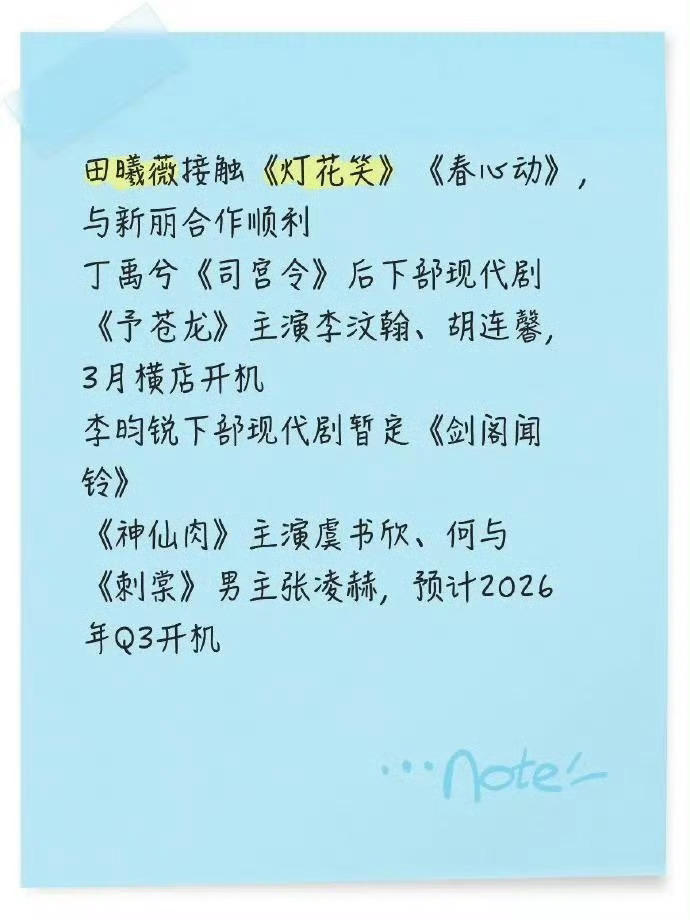 田曦薇接触《灯花笑》《春心动》，
与新丽合作顺利
丁禹兮《司宫令》后下部现代剧
《予苍龙》主演李汶翰、胡连馨,
3月横店开机
李昀锐下部现代剧暂定《剑阁闻
铃》
《神仙肉》主演虞书欣、何与
《刺棠》男主张凌赫，预计2026
年Q3开机
...note!-